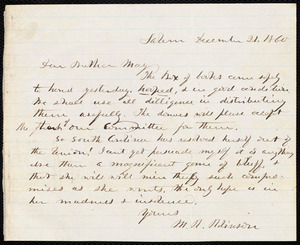 Salem December 21. 1860
Dear Brother May,
The Box of books came safely
to hand yesterday, & in good condition.
We shall use all diligence in distributing
them usefully. The donors will please accept
the thanks of our Committee for them.
So South Carolina has resolved herself out of
the Union! I cant get persuade myself it is anything
else than a magnificent game of bluff, &
that she will with such compro-
mises as she wants. The only hope is in
her madness & insolence.
Yours
M. R. Robinson